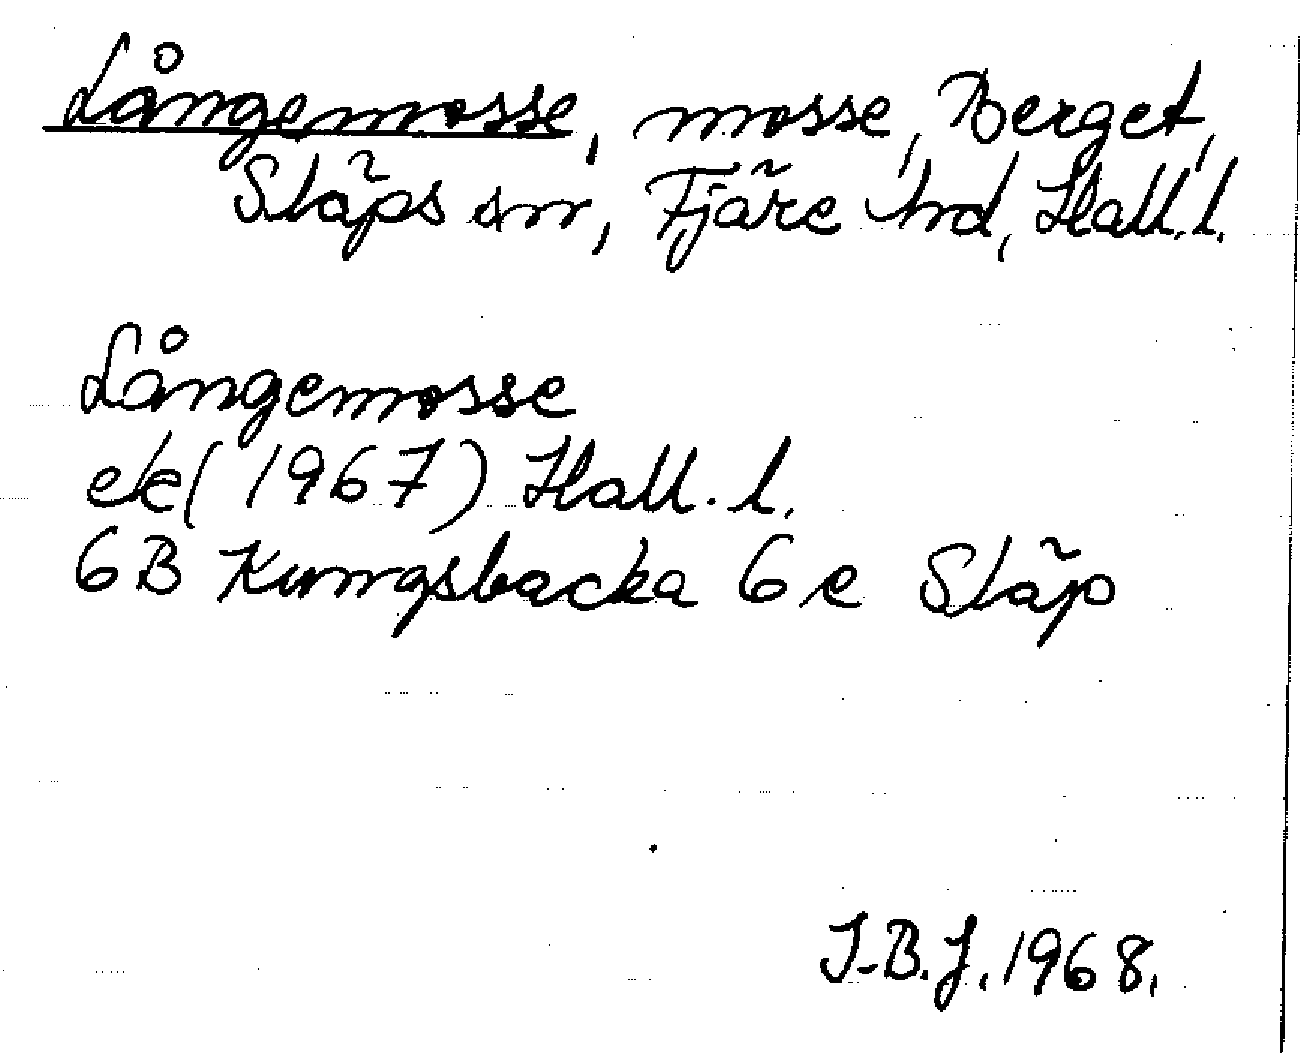 Långemosse, mosse, Berget,
Släps sn, Fjäre hd, Hall. l.
Långemosse
ek (1967) Hall. l.
6B Kungsbacka 6e Släp
I-B.J. 1968.